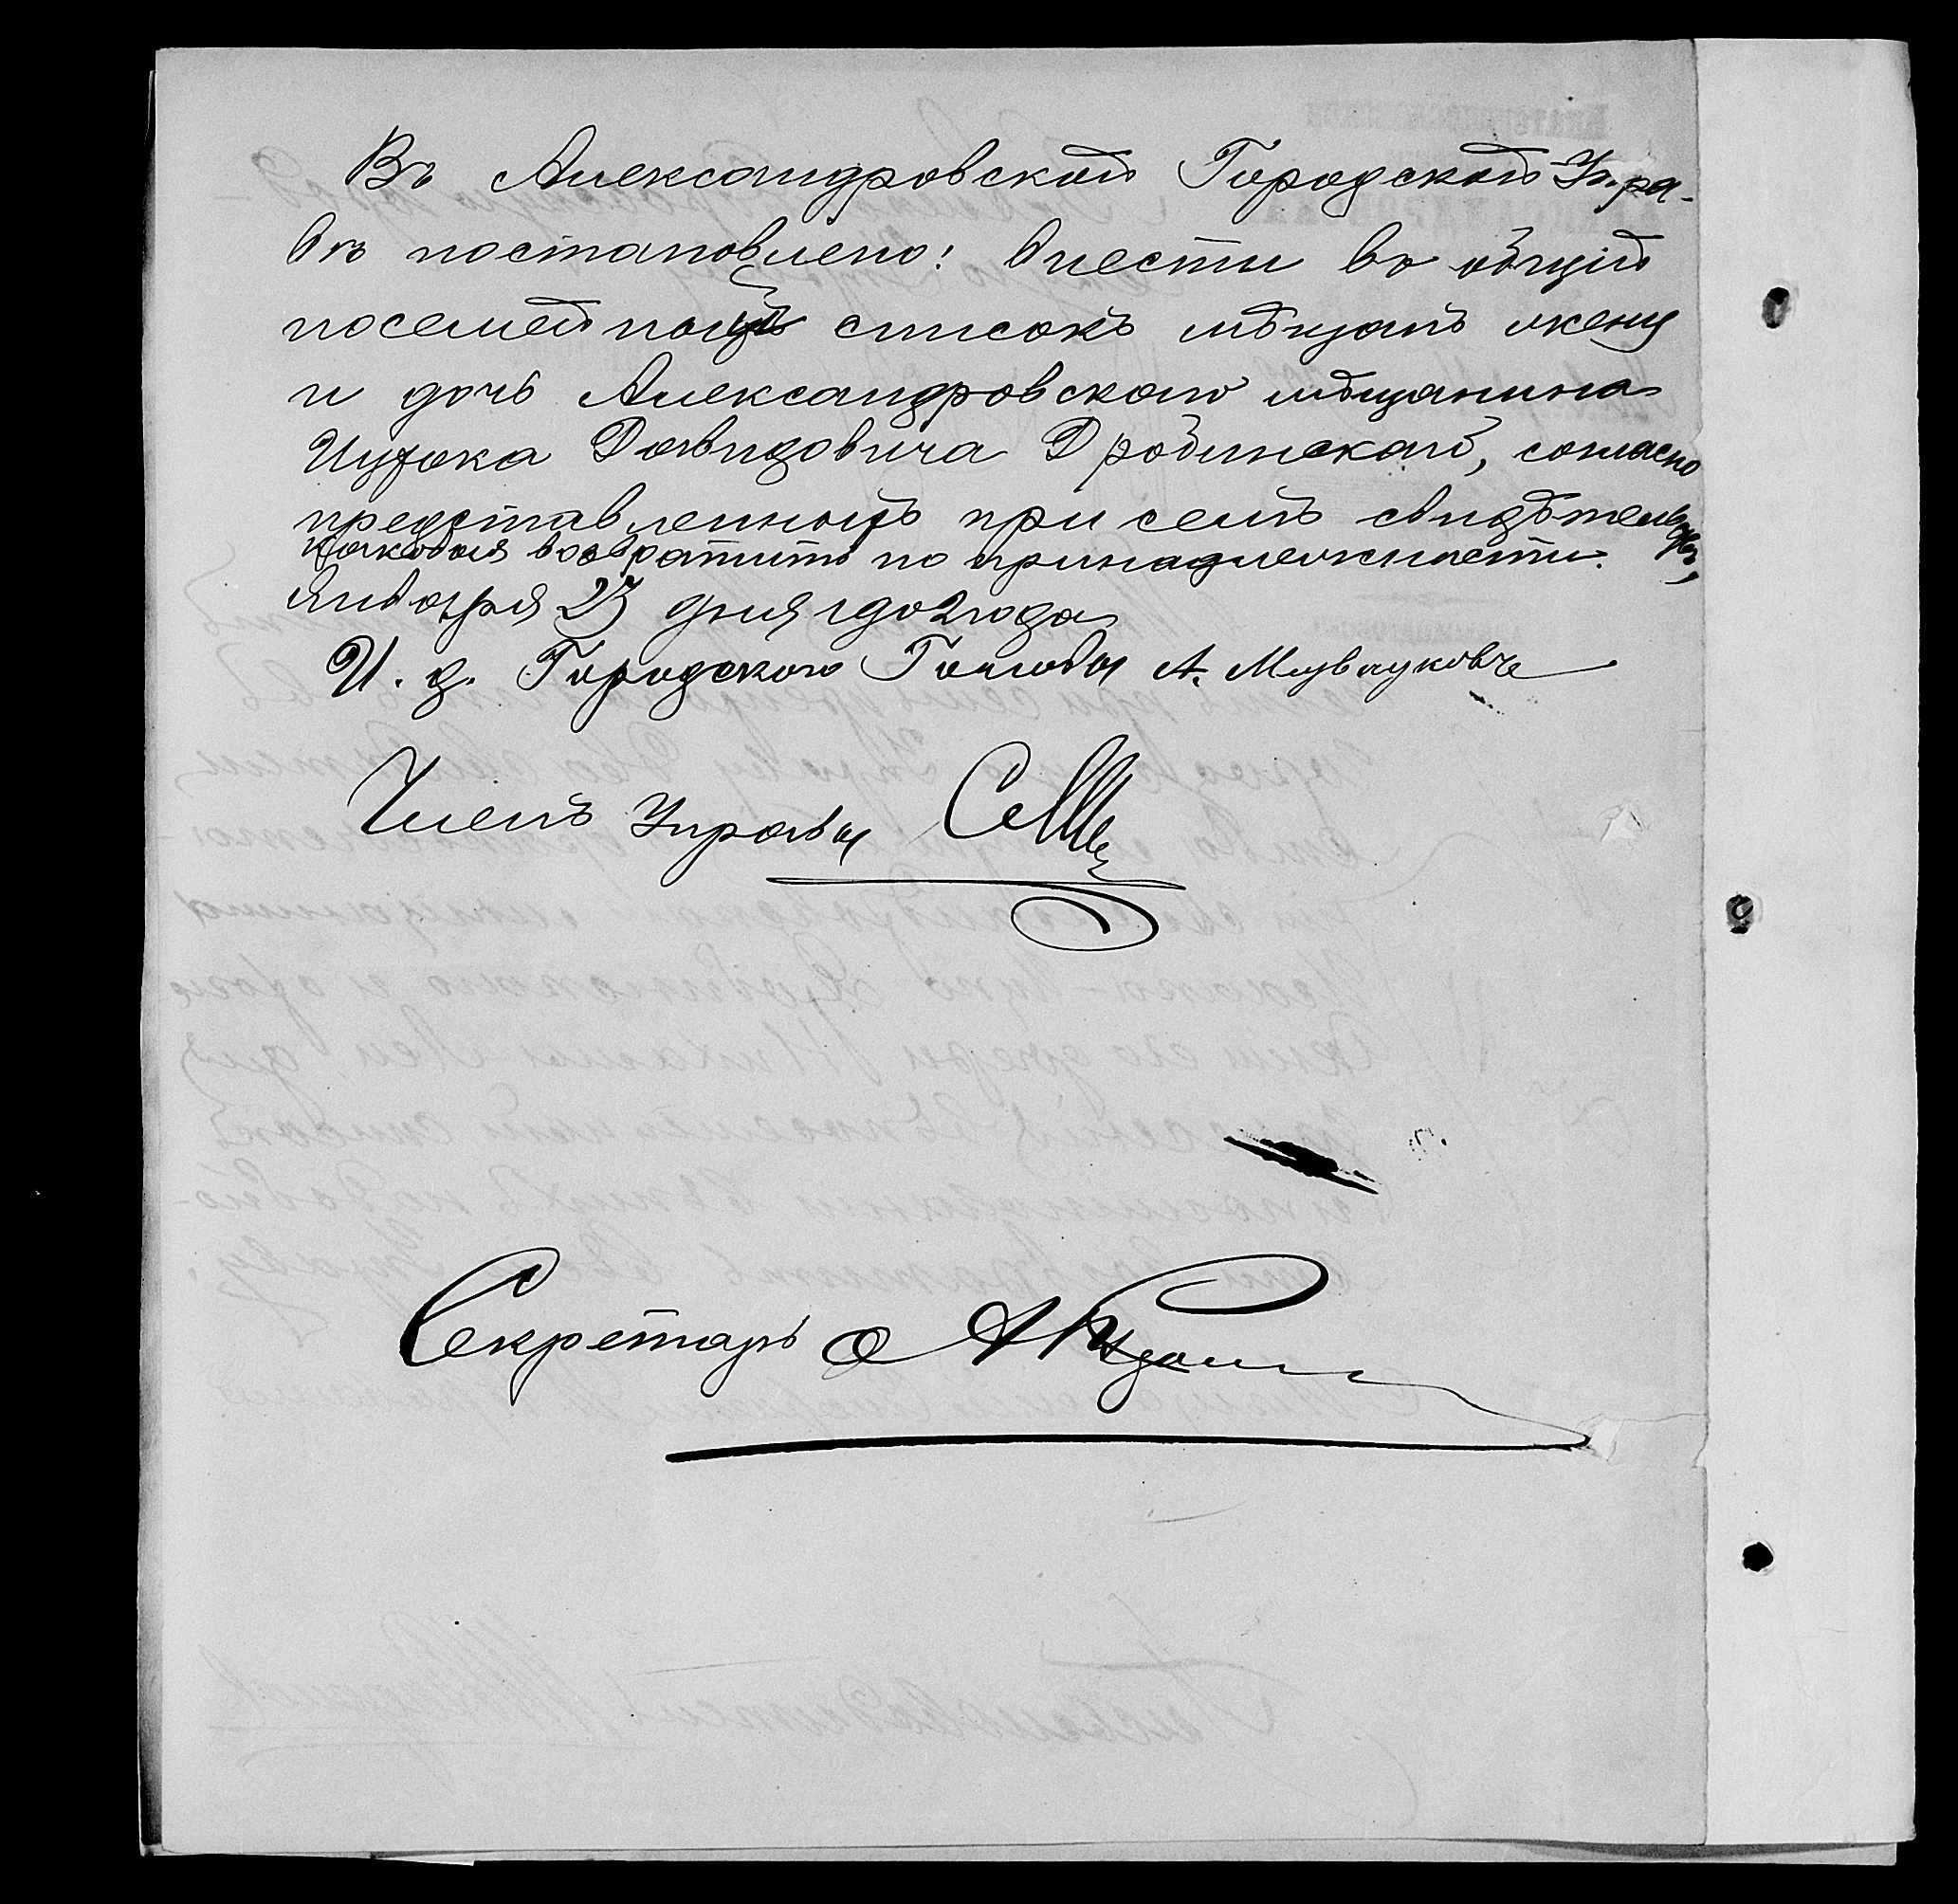 Въ Александровской Городской Упра-
вѣ постановлено: внести въ общій
посемейный списокъ мѣщанъ жену
и дочь Александровскаго мѣщанина
Ицхока Давидовича Дробинскаго, согласно
представленныхъ при семъ свидѣтельствъ,
каковыя возвратить по принадлежности.
Января 23 дня 1902 года
И. д. Городского Головы А.
Членъ Управы
Секретарь